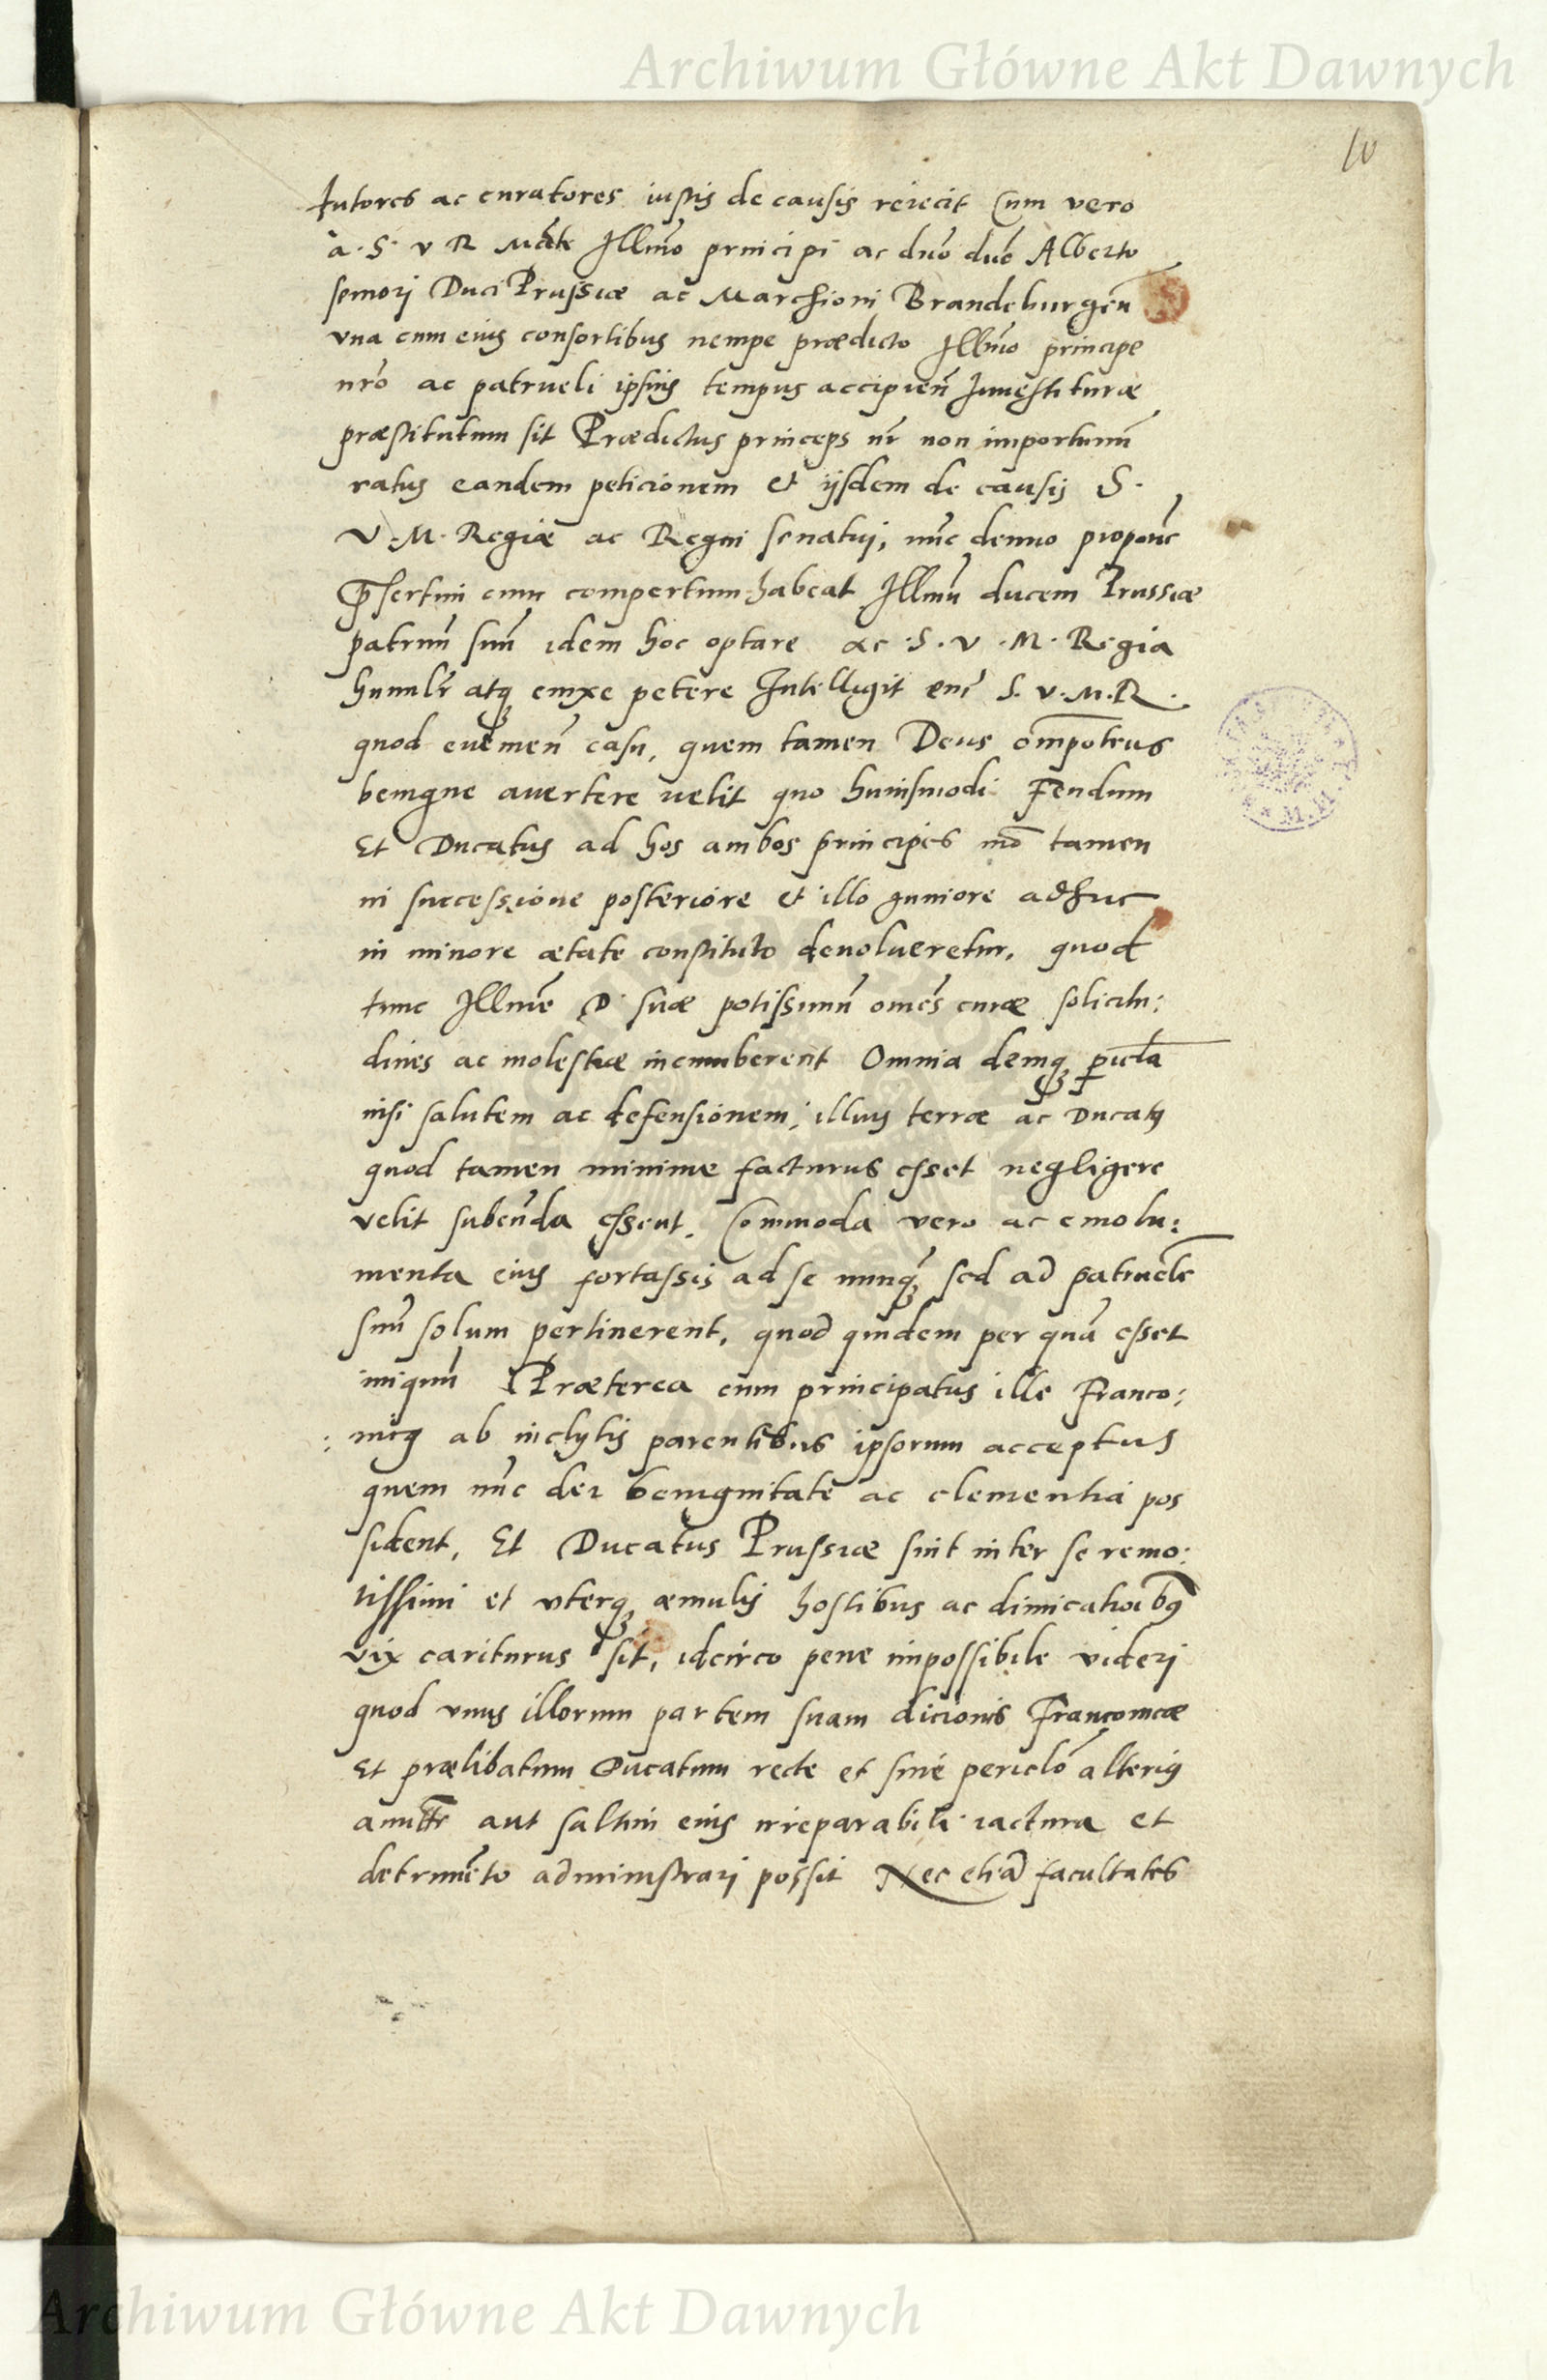 Archiwum Główne Akt Dawnych
10
tutores ac curatores iustis de causis reiecit Cum vero
a. S. v R Mate Illmo principi ac dno dno Alberto
seniori Duci Prussiæ ac Marchioni Brandeburgen
vna cum eius consortibus nempe prædicto Illmo principe
nro ac patrueli ipsius tempus accipien Inuestituræ
præstitutum sit Prædictus princeps nr non importunu
ratus eandem peticionem et ijsdem de causis S.
V. M. Regiæ ac Regni senatui, nuc denuo proponit
Præsertim cum compertum habeat Illmu ducem Prussiæ
patruu suu idem hoc optare ac S. v. M. Regia
humilr atq enixe petere Intelligit eni S. v. M. R.
quod euenien casu, quem tamen Deus omnipotens
benigne auertere uelit quo huiusmodi Feudum
Et Ducatus ad hos ambos principes mo tamen
in successione posteriore et illo iuniore adhuc
in minore ætate constituto deuolueretur, quod
tunc Illme D. suæ potissimu omes curæ solicitu:
dines ac molestiæ incumberent Omnia deniq pericla
nisi salutem ac defensionem, illius terræ ac Ducatus
quod tamen minime facturus esset negligere
velit subeunda essent. Commoda vero ac emolu:
menta eius fortassis ad se nunq sed ad patruele
suu solum pertinerent, quod quidem per qua esset
iniquu Præterea cum principatus ille Franco:
: nicus ab inclytis parentibus ipsorum acceptus
quem nuc dei benignitate ac clementia pos
sident, Et Ducatus Prussiæ sint inter se remo:
tissimi et vterq æmulis hostibus ac dimicationibus
vix cariturus sit, idcirco pene impossibile videri
quod vnus illorum partem suam dicionis Franconicæ
Et prælibatum Ducatum recte et sine periclo alterius
amitte aut saltim eius irreparabili iactura et
detrimeto administrari possit Nec etia facultates
Archiwum Główne Akt Dawnych